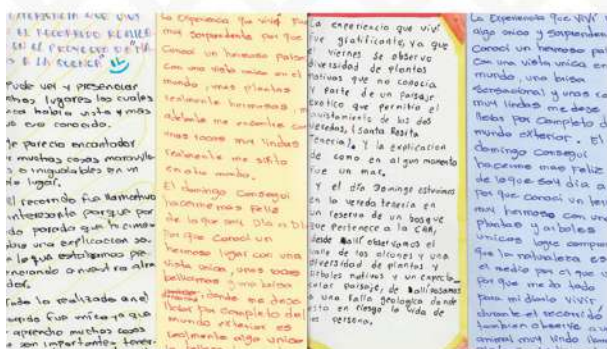 EXPERIENCIA QUE VIVI
EL RECORRIDO REALICE
EN EL PROYECTO DE "MA
S A LA CUENCA"
Pude ver y presenciar
muchos lugares los cuales
nunca había visto y mas
conocido.
Me parecio encantador
muchas cosas maravillo
s e inigualables en un
lugar.
El recorrido fue llamativo
interesante porque por
parada que hicimos
una explicacion so
lo que estabamos
a nuestro alre
dor.
Todo lo realizado en el
fue unica ya que
aprendo muchas cosas
son importantes
La Experiencia que viví Fue
muy sorpendente por que
Conoci un hermoso paisaje
con una vista unica en el
mundo, unas plantas
realmente hermosas,
adelante me encontre con
unas rocas muy lindas
realmente me sitio
en otro mundo.
El domingo Consegui
hacerme mas feliz
de lo que soy Dia a Dia
por que Conoci un
hermoso lugar con una
vista unica, unas rocas
bellisimas y una brisa
donde me deje
llevar por completo del
mundo exterior es
realmente algo unico
La experiencia que viví
fue gratificante, ya que
el viernes se observo
diversidad de plantas
nativas que no conocia
y parte de un paisaje
exotico que permitio el
avistamiento de las dos
veredas, (santa Rosita
Teneria). Y la explicacion
de como en algun momento
fue un mar.
Y el dia Domingo estuvimos
en la vereda teneria en
una reserva de un bosque
que pertenece a la CAR,
desde alli observamos el
valle de los alcones y una
diversidad de plantas y
arboles nativos y un especta_
cular paisaje, de alli pasamos
a una falla geologica donde
esta en riesgo la vida de
las persona.
La Experiencia Que Viví
algo unico y sorpendente
Conoci un hermoso pa
Con una vista unica en
mundo, una brisa
sensacional y unas ro
muy lindas me deje
llebar por Completo d
mundo exterior. El
domingo Consegui
hacerme mas Feliz
de lo que soy dia a
por que conoci un
muy hermoso con un
plantas y arboles
unicos logre compr
que la naturaleza es
el medio por el que
por que me da todo
para mi diario vivir
durante el recorrido
tambien observe a u
animal muy lindo